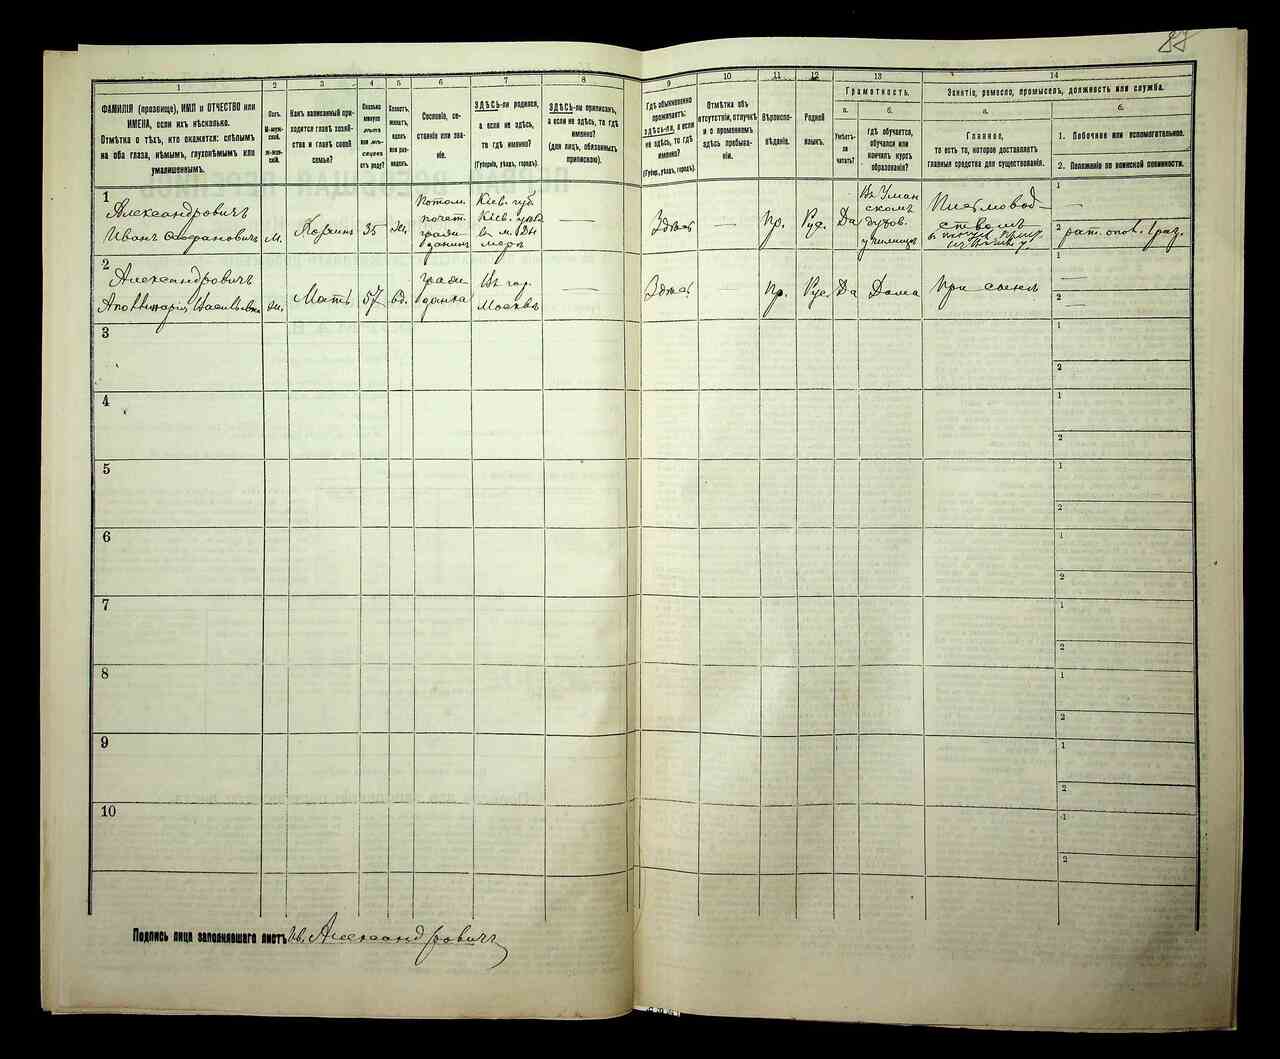 87
1
2
3
4
5
6
7
8
9
10
11
12
13
14
ФАМИЛІЯ (прозвище), ИМЯ и ОТЧЕСТВО или
ИМЕНА, если ихъ нѣсколько.
Отмѣтка о тѣхъ, кто окажется: слѣпымъ
на оба глаза, нѣмымъ, глухонѣмымъ или
умалишеннымъ.
Полъ.
М-мужской.
ж-женскій.
Какъ записанный приходится
главѣ хозяйства
и главѣ своей
семьи?
Сколько
минуло
лѣтъ
или мѣсяцевъ
отъ роду?
Холостъ,
женатъ,
вдовъ
или разведенъ.
Сословіе, состояніе
или званіе.
ЗДѢСЬ-ли родился,
а если не здѣсь,
то гдѣ именно?
(Губернія, уѣздъ, городъ).
ЗДѢСЬ-ли приписанъ,
а если не здѣсь, то гдѣ
именно?
(для лицъ, обязанныхъ
припискою).
Гдѣ обыкновенно
проживаетъ:
ЗДѢСЬ-ли, а если
не здѣсь, то гдѣ
именно?
(Губер., уѣздъ, городъ).
Отмѣтка объ
отсутствіи, отлучкѣ
и о временномъ
здѣсь пребываніи.
Вѣроисповѣданіе.
Родной
языкъ.
Грамотность.
а.
Умѣетъ-ли
читать?
б.
гдѣ обучается,
обучался или
кончилъ курсъ
образованія?
Занятіе, ремесло, промыселъ, должность или служба.
а.
Главное,
то есть то, которое доставляетъ
главныя средства для существованія.
б.
1. Побочное или вспомогательное.
2. Положеніе по воинской повинности.
1
Александровичъ
Иванъ Стефановичъ
м.
Хозяинъ
35
ж.
Потом.
почет.
гражданинъ
Кіев. губ.
Кіев. уѣз.
—
Здѣсь
—
Пр.
Рус.
Да
Въ Уманскомъ
духов.
училищѣ
Пчеловодствомъ
1 —
2 рат. опол. 1 раз.
2
Александровичъ
Аполлинарія Васильевна
ж.
Мать
57
вд.
гражданка
Въ гор.
Москвѣ
—
Здѣсь
—
Пр.
Рус.
Да
Дома
При сынѣ
1 —
2 —
3
1
2
4
1
2
5
1
2
6
1
2
7
1
2
8
1
2
9
1
2
10
1
2
Подпись лица заполнявшаго листъ Ив. Александровичъ